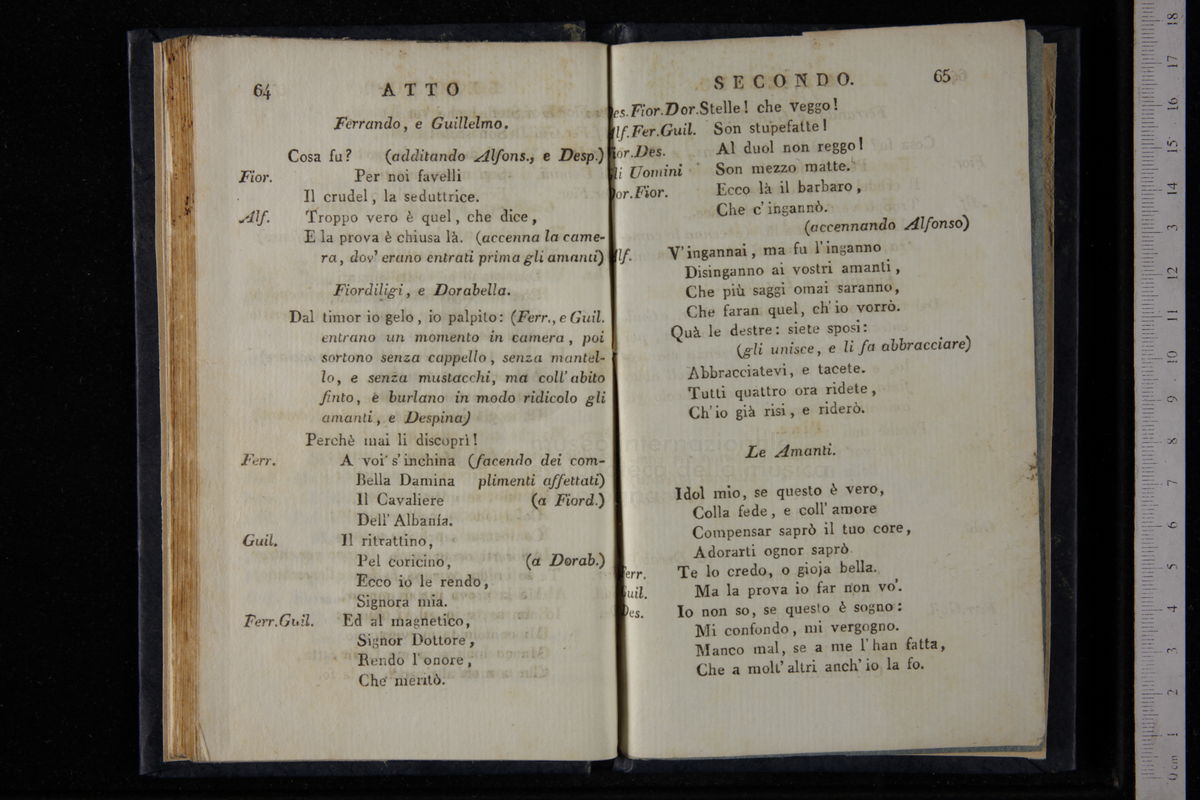 64 ATTO
Ferrando, e Guillelmo.
Cosa fu? (additando Alfons., e Desp.)
Fior. Per noi favelli
Il crudel, la seduttrice.
Alf. Troppo vero è quel, che dice,
E la prova è chiusa là. (accenna la came-
ra, dov' erano entrati prima gli amanti)
Fiordiligi, e Dorabella.
Dal timor io gelo, io palpito: (Ferr., e Guil.
entrano un momento in camera, poi
sortono senza cappello, senza mantel-
lo, e senza mustacchi, ma coll' abito
finto, e burlano in modo ridicolo gli
amanti, e Despina)
Perchè mai li discoprì!
Ferr. A voi s'inchina (facendo dei com-
Bella Damina plimenti affettati)
Il Cavaliere (a Fiord.)
Dell' Albanía.
Guil. Il ritrattino,
Pel coricino, (a Dorab.)
Ecco io le rendo,
Signora mia.
Ferr.Guil. Ed al magnetico,
Signor Dottore,
Rendo l'onore,
Che meritò.
SECONDO. 65
es.Fior.Dor.Stelle! che veggo!
lf.Fer.Guil. Son stupefatte!
ior.Des. Al duol non reggo!
li Uomini Son mezzo matte.
or.Fior. Ecco là il barbaro,
Che c'ingannò.
(accennando Alfonso)
lf. V'ingannai, ma fu l'inganno
Disinganno ai vostri amanti,
Che più saggi omai saranno,
Che faran quel, ch'io vorrò.
Quà le destre: siete sposi:
(gli unisce, e li fa abbracciare)
Abbracciatevi, e tacete.
Tutti quattro ora ridete,
Ch'io già risi, e riderò.
Le Amanti.
Idol mio, se questo è vero,
Colla fede, e coll' amore
Compensar saprò il tuo core,
Adorarti ognor saprò.
err. Te lo credo, o gioja bella.
uil. Ma la prova io far non vo'.
es. Io non so, se questo è sogno:
Mi confondo, mi vergogno.
Manco mal, se a me l'han fatta,
Che a molt' altri anch' io la fo.
0 cm 1 2 3 4 5 6 7 8 9 10 11 12 13 14 15 16 17 18